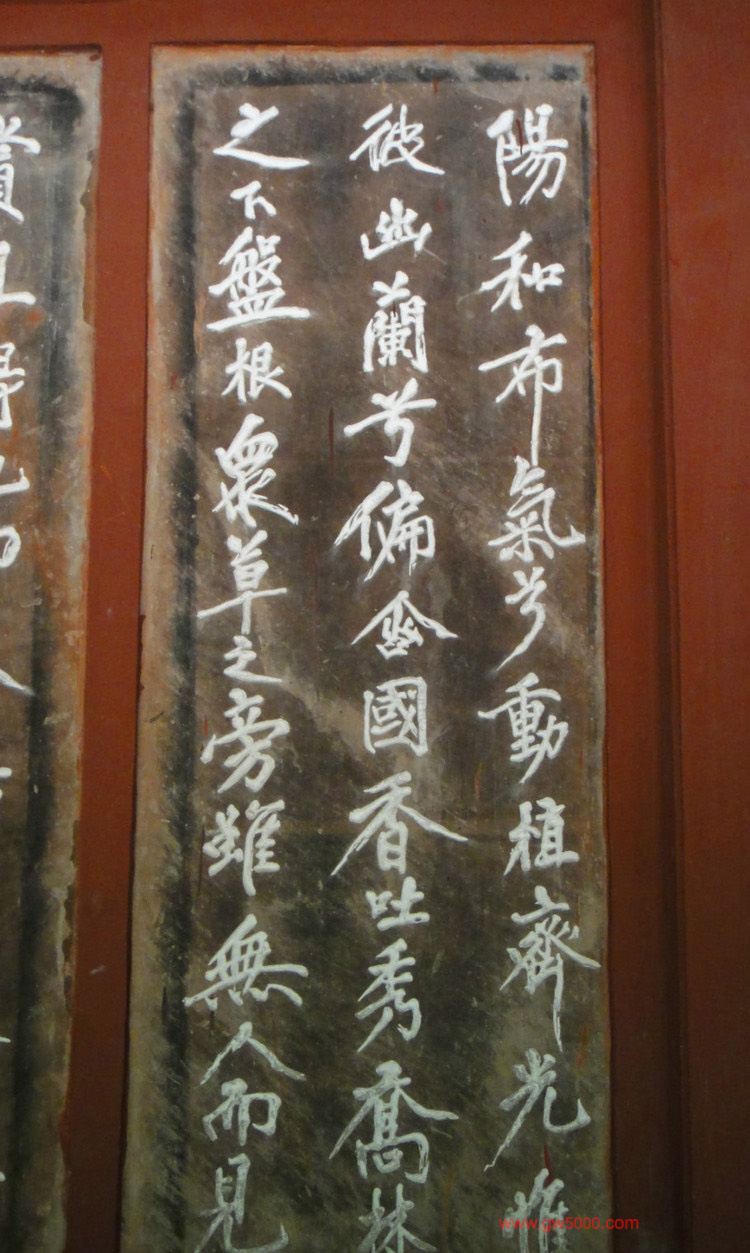 陽和布氣兮動植齊光惟
彼幽蘭兮偏含國香吐秀喬林
之下盤根衆草之旁雖無人而見
賞且得
www.gw5000.com